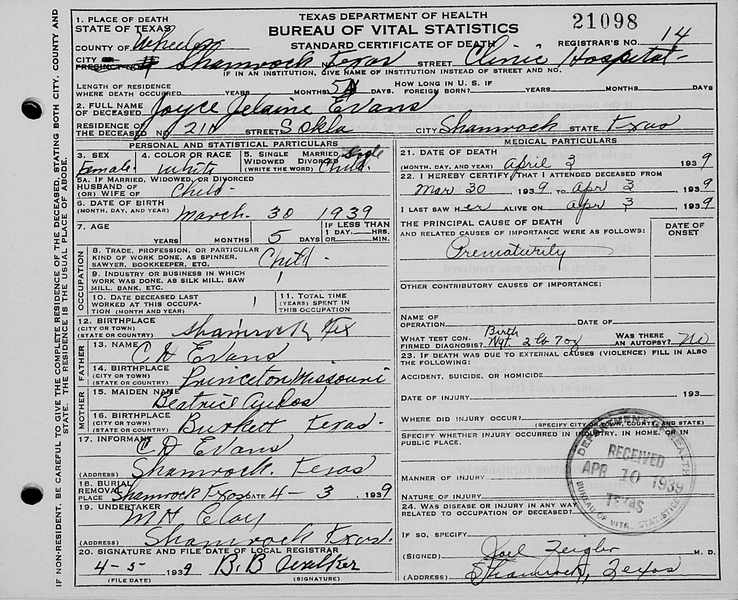 TEXAS DEPARTMENT OF HEALTH
BUREAU OF VITAL STATISTICS
STANDARD CERTIFICATE OF DEATH
21098
REGISTRAR'S NO. 14
1. PLACE OF DEATH
STATE OF TEXAS
COUNTY OF Wheeler
CITY OR PRECINCT NO. Shamrock Texas STREET Clinic Hospital
IF IN AN INSTITUTION, GIVE NAME OF INSTITUTION INSTEAD OF STREET AND NO.
LENGTH OF RESIDENCE WHERE DEATH OCCURRED YEARS MONTHS 5 DAYS HOW LONG IN U. S. IF FOREIGN BORN? YEARS MONTHS DAYS
2. FULL NAME OF DECEASED Joyce Jelaine Evans
RESIDENCE OF THE DECEASED NO. 211 STREET S Okla CITY Shamrock STATE Texas
PERSONAL AND STATISTICAL PARTICULARS
3. SEX Female
4. COLOR OR RACE White
5. SINGLE MARRIED, WIDOWED DIVORCED (WRITE THE WORD) Single Child
5A. IF MARRIED, WIDOWED, OR DIVORCED
HUSBAND OF (OR) WIFE OF Child
6. DATE OF BIRTH (MONTH, DAY, AND YEAR) March 30 1939
7. AGE YEARS MONTHS 5 DAYS IF LESS THAN 1 DAY: HRS. OR MIN.
OCCUPATION
8. TRADE, PROFESSION, OR PARTICULAR KIND OF WORK DONE, AS SPINNER, SAWYER, BOOKKEEPER, ETC. Child
9. INDUSTRY OR BUSINESS IN WHICH WORK WAS DONE, AS SILK MILL, SAW MILL, BANK, ETC.
10. DATE DECEASED LAST WORKED AT THIS OCCUPATION (MONTH AND YEAR)
11. TOTAL TIME (YEARS) SPENT IN THIS OCCUPATION
12. BIRTHPLACE (CITY OR TOWN) (STATE OR COUNTRY) Shamrock Tex
FATHER
13. NAME C D Evans
14. BIRTHPLACE (CITY OR TOWN) (STATE OR COUNTRY) Princeton Missouri
MOTHER
15. MAIDEN NAME Beatrice
16. BIRTHPLACE (CITY OR TOWN) (STATE OR COUNTRY) Burkett Texas
17. INFORMANT C D Evans
(ADDRESS) Shamrock, Texas
18. BURIAL REMOVAL PLACE Shamrock Texas DATE 4 - 3 1939
19. UNDERTAKER M H Clay
(ADDRESS) Shamrock Texas
20. SIGNATURE AND FILE DATE OF LOCAL REGISTRAR
4-5 1939 B. B Walker
(FILE DATE) (SIGNATURE)
MEDICAL PARTICULARS
21. DATE OF DEATH (MONTH, DAY, AND YEAR) April 3 1939
22. I HEREBY CERTIFY THAT I ATTENDED DECEASED FROM
Mar 30 1939 TO Apr 3 1939
I LAST SAW HER ALIVE ON Apr 3 1939
THE PRINCIPAL CAUSE OF DEATH AND RELATED CAUSES OF IMPORTANCE WERE AS FOLLOWS:
DATE OF ONSET
Prematurity
OTHER CONTRIBUTORY CAUSES OF IMPORTANCE:
NAME OF OPERATION DATE OF
WHAT TEST CONFIRMED DIAGNOSIS? Birth Wgt. 2 lb 7 oz WAS THERE AN AUTOPSY? No
23. IF DEATH WAS DUE TO EXTERNAL CAUSES (VIOLENCE) FILL IN ALSO THE FOLLOWING:
ACCIDENT, SUICIDE, OR HOMICIDE?
DATE OF INJURY 193
WHERE DID INJURY OCCUR?
(SPECIFY CITY OR TOWN, COUNTY AND STATE)
SPECIFY WHETHER INJURY OCCURRED IN INDUSTRY, IN HOME, OR IN PUBLIC PLACE.
MANNER OF INJURY
NATURE OF INJURY
24. WAS DISEASE OR INJURY IN ANY WAY RELATED TO OCCUPATION OF DECEASED?
IF SO, SPECIFY
(SIGNED) Joel Zeigler M. D.
(ADDRESS) Shamrock, Texas
DEPARTMENT OF HEALTH
RECEIVED
APR 10 1939
TEXAS
BUREAU OF VITAL STATISTICS
IF NON-RESIDENT, BE CAREFUL TO GIVE THE COMPLETE RESIDENCE OF THE DECEASED STATING BOTH CITY, COUNTY AND STATE. THE RESIDENCE IS THE USUAL PLACE OF ABODE.